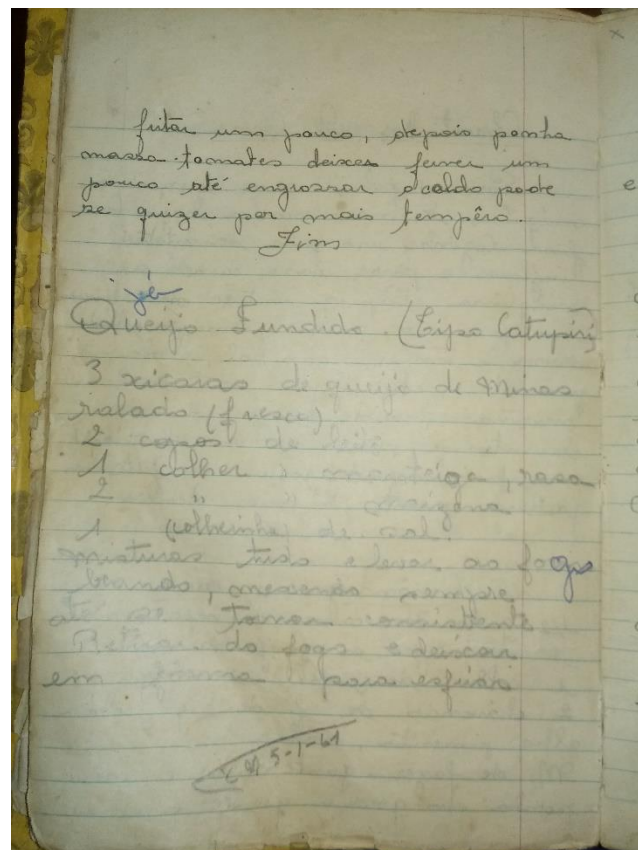 fritar um pouco, depois ponha
massa-tomates deixes ferver um
pouco até engrossar o caldo pode
se quizer por mais tempêro.
Fim
Queijo Fundido. (Tipo Catupiri)
3 xicaras de queijo de Minas
ralado (fresco)
2 copos de leite
1 colher " manteiga, rasa
2 " " maizena
1 colherinha de sal.
misturar tudo e levar ao fogo
brando, mexendo sempre
até se tornar consistente
Retirar do fogo e deixar
em forma para esfriar
5-1-61